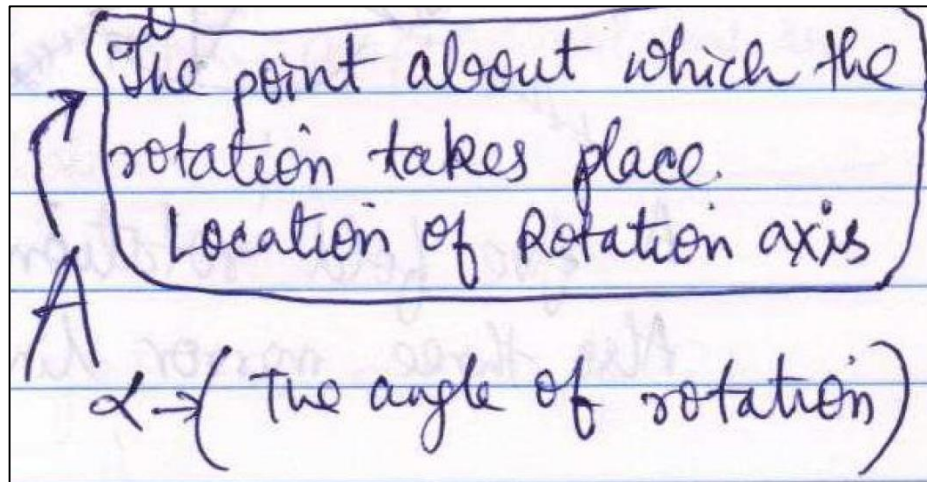 The point about which the
rotation takes place.
Location of Rotation axis
A
α → (The angle of rotation)